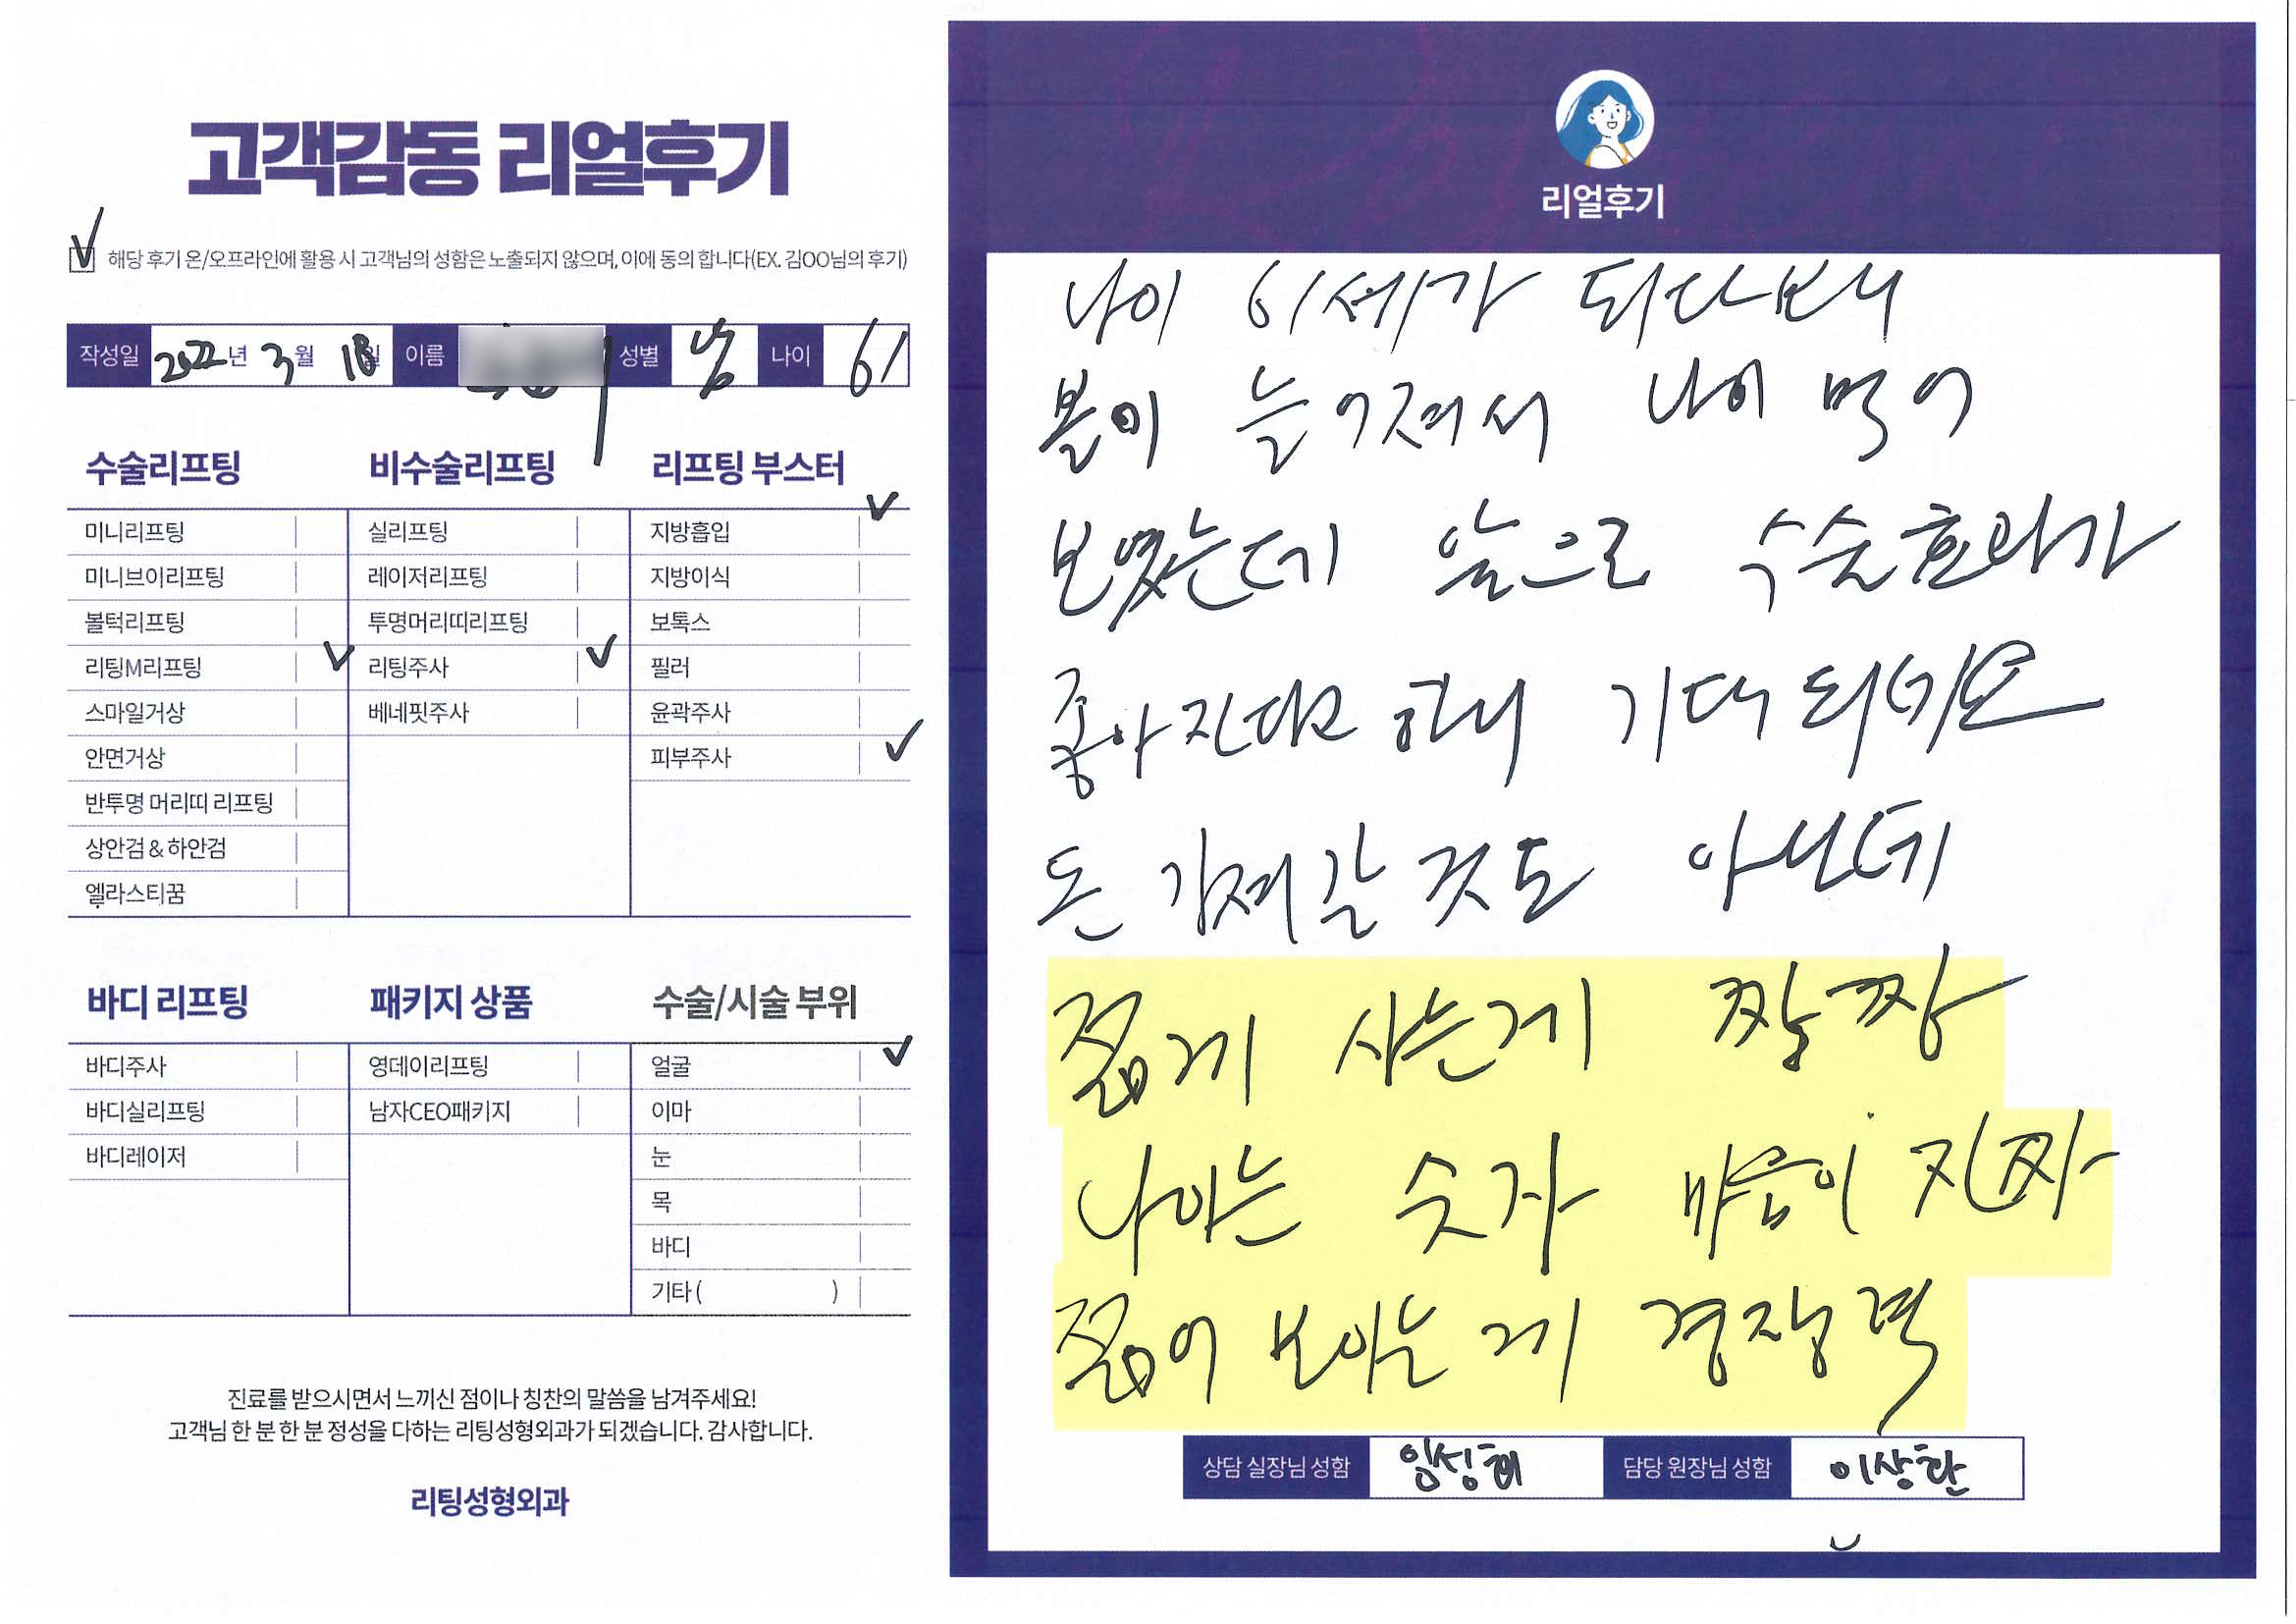 고객감동 리얼후기
해당 후기 온/오프라인에 활용 시 고객님의 성함은 노출되지 않으며, 이에 동의 합니다(EX. 김OO님의 후기)
작성일 2022년 3월 18일 이름 성별 남 나이 61
수술리프팅
미니리프팅
미니브이리프팅
볼턱리프팅
리팅M리프팅
스마일거상
안면거상
반투명 머리띠 리프팅
상안검 & 하안검
엘라스티꿈
비수술리프팅
실리프팅
레이저리프팅
투명머리띠리프팅
리팅주사
베네핏주사
리프팅 부스터
지방흡입
지방이식
보톡스
필러
윤곽주사
피부주사
바디 리프팅
바디주사
바디실리프팅
바디레이저
패키지 상품
영데이리프팅
남자CEO패키지
수술/시술 부위
얼굴
이마
눈
목
바디
기타 ( )
진료를 받으시면서 느끼신 점이나 칭찬의 말씀을 남겨주세요!
고객님 한 분 한 분 정성을 다하는 리팅성형외과가 되겠습니다. 감사합니다.
리팅성형외과
리얼후기
나이 61세가 되다보니
볼이 늘어져서 나이 먹어
보였는데 앞으로 수술효과가
좋아진다고 하니 기대되네요
돈 가져갈 것도 아닌데
젊게 사는게 짱짱
나이는 숫자 마음이 진짜
젊어 보이는 게 경쟁력
상담 실장님 성함 임성희 담당 원장님 성함 이상환